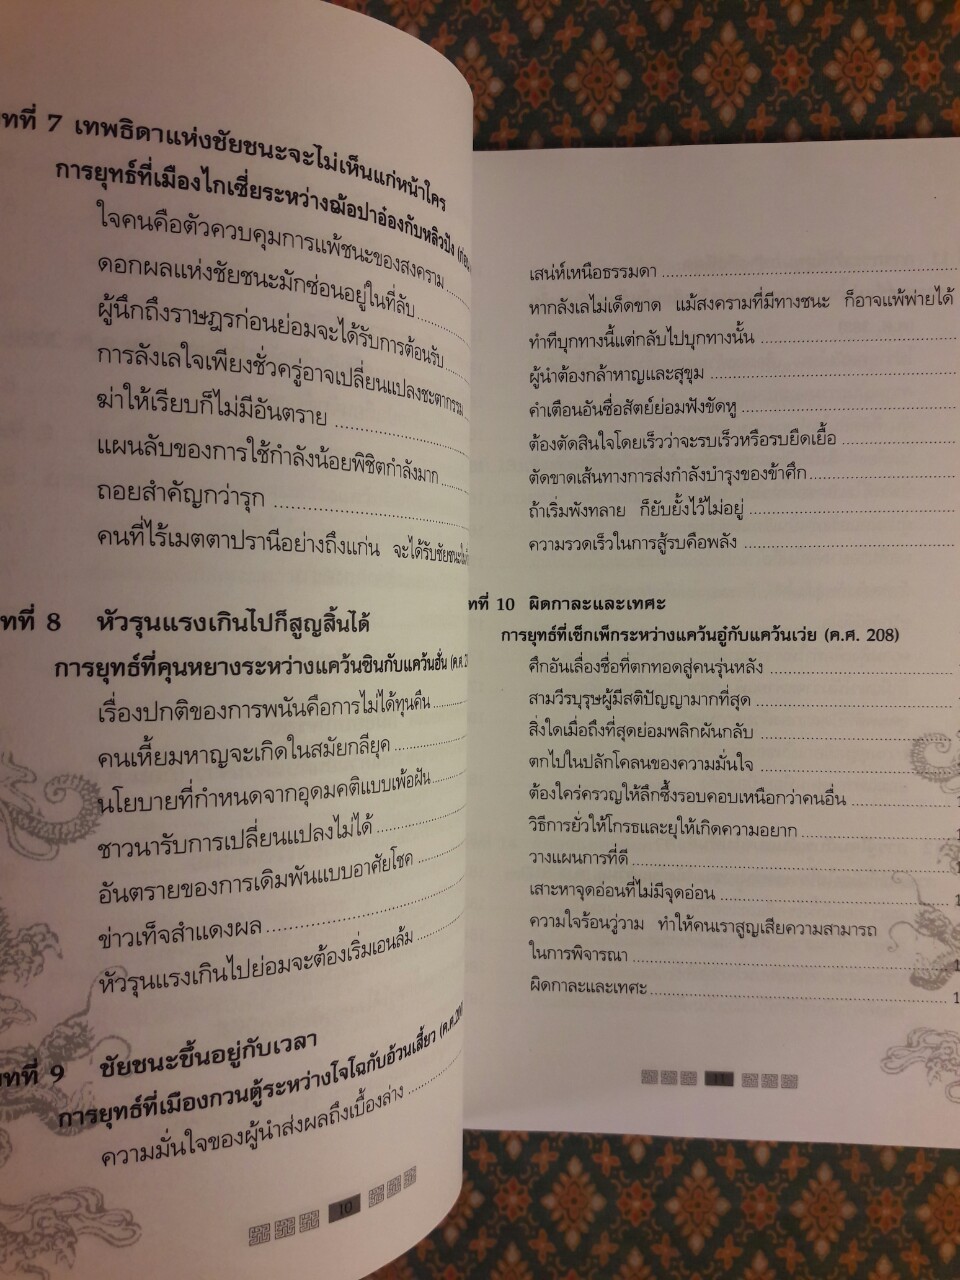 ทที่ 7 เทพธิดาแห่งชัยชนะจะไม่เห็นแก่หน้าใคร
การยุทธ์ที่เมืองไกเซี่ยระหว่างฌ้อปาอ๋องกับหลิวปัง (ก่อน
ใจคนคือตัวควบคุมการแพ้ชนะของสงคราม
ดอกผลแห่งชัยชนะมักซ่อนอยู่ในที่ลับ
ผู้นึกถึงราษฎรก่อนย่อมจะได้รับการต้อนรับ
การลังเลใจเพียงชั่วครู่อาจเปลี่ยนแปลงชะตากรรม
ฆ่าให้เรียบก็ไม่มีอันตราย
แผนลับของการใช้กำลังน้อยพิชิตกำลังมาก
ถอยสำคัญกว่ารุก
คนที่ไร้เมตตาปรานีอย่างถึงแก่น จะได้รับชัยชนะ
ทที่ 8 หัวรุนแรงเกินไปก็สูญสิ้นได้
การยุทธ์ที่คุนหยางระหว่างแคว้นซินกับแคว้นฮั่น (ค.ศ. 2
เรื่องปกติของการพนันคือการไม่ได้ทุนคืน
คนเหี้ยมหาญจะเกิดในสมัยกลียุค
นโยบายที่กำหนดจากอุดมคติแบบเพ้อฝัน
ชาวนารับการเปลี่ยนแปลงไม่ได้
อันตรายของการเดิมพันแบบอาศัยโชค
ข่าวเท็จสำแดงผล
หัวรุนแรงเกินไปย่อมจะต้องเริ่มเอนล้ม
ทที่ 9 ชัยชนะขึ้นอยู่กับเวลา
การยุทธ์ที่เมืองกวนตู้ระหว่างโจโฉกับอ้วนเสี้ยว (ค.ศ.200
ความมั่นใจของผู้นำส่งผลถึงเบื้องล่าง
10
เสน่ห์เหนือธรรมดา
หากลังเลไม่เด็ดขาด แม้สงครามที่มีทางชนะ ก็อาจแพ้พ่ายได้
ทำทีบุกทางนี้แต่กลับไปบุกทางนั้น
ผู้นำต้องกล้าหาญและสุขุม
คำเตือนอันซื่อสัตย์ย่อมฟังขัดหู
ต้องตัดสินใจโดยเร็วว่าจะรบเร็วหรือรบยืดเยื้อ
ตัดขาดเส้นทางการส่งกำลังบำรุงของข้าศึก
ถ้าเริ่มพังทลาย ก็ยับยั้งไว้ไม่อยู่
ความรวดเร็วในการสู้รบคือพลัง
ทที่ 10 ผิดกาละและเทศะ
การยุทธ์ที่เซ็กเพ็กระหว่างแคว้นอู๋กับแคว้นเว่ย (ค.ศ. 208)
ศึกอันเลื่องชื่อที่ตกทอดสู่คนรุ่นหลัง
สามวีรบุรุษผู้มีสติปัญญามากที่สุด
สิ่งใดเมื่อถึงที่สุดย่อมพลิกผันกลับ
ตกไปในปลักโคลนของความมั่นใจ
ต้องใคร่ครวญให้ลึกซึ้งรอบคอบเหนือกว่าคนอื่น
วิธีการยั่วให้โกรธและยุให้เกิดความอยาก
วางแผนการที่ดี
เสาะหาจุดอ่อนที่ไม่มีจุดอ่อน
ความใจร้อนวู่วาม ทำให้คนเราสูญเสียความสามารถ
ในการพิจารณา
ผิดกาละและเทศะ
11